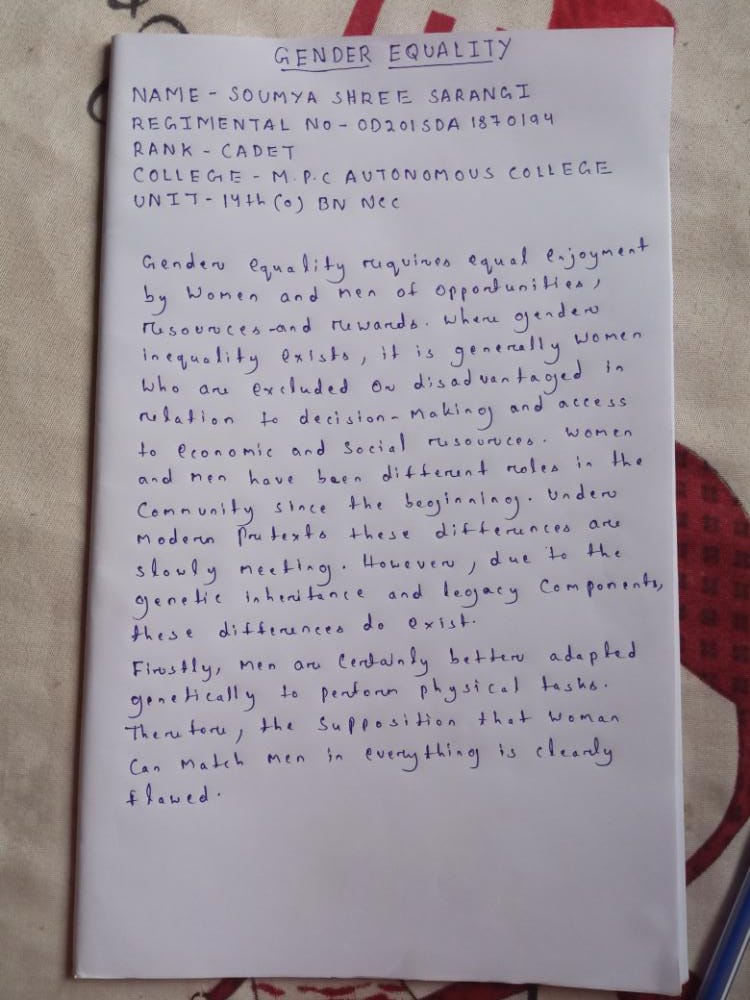 GENDER EQUALITY
NAME - SOUMYA SHREE SARANGI
REGIMENTAL NO - OD20ISDA 1870194
RANK - CADET
COLLEGE - M.P.C AUTONOMOUS COLLEGE
UNIT - 14th (O) BN NCC
Gender equality requires equal enjoyment
by women and men of opportunities,
resources and rewards. Where gender
inequality exists, it is generally women
who are excluded or disadvantaged in
relation to decision-making and access
to economic and social resources. Women
and men have been different roles in the
Community since the beginning. Under
modern Pretexts these differences are
slowly meeting. However, due to the
genetic inheritance and legacy Components,
these differences do exist.
Firstly, men are Certainly better adapted
genetically to perform physical tasks.
Therefore, the Supposition that Woman
Can match men in everything is clearly
flawed.